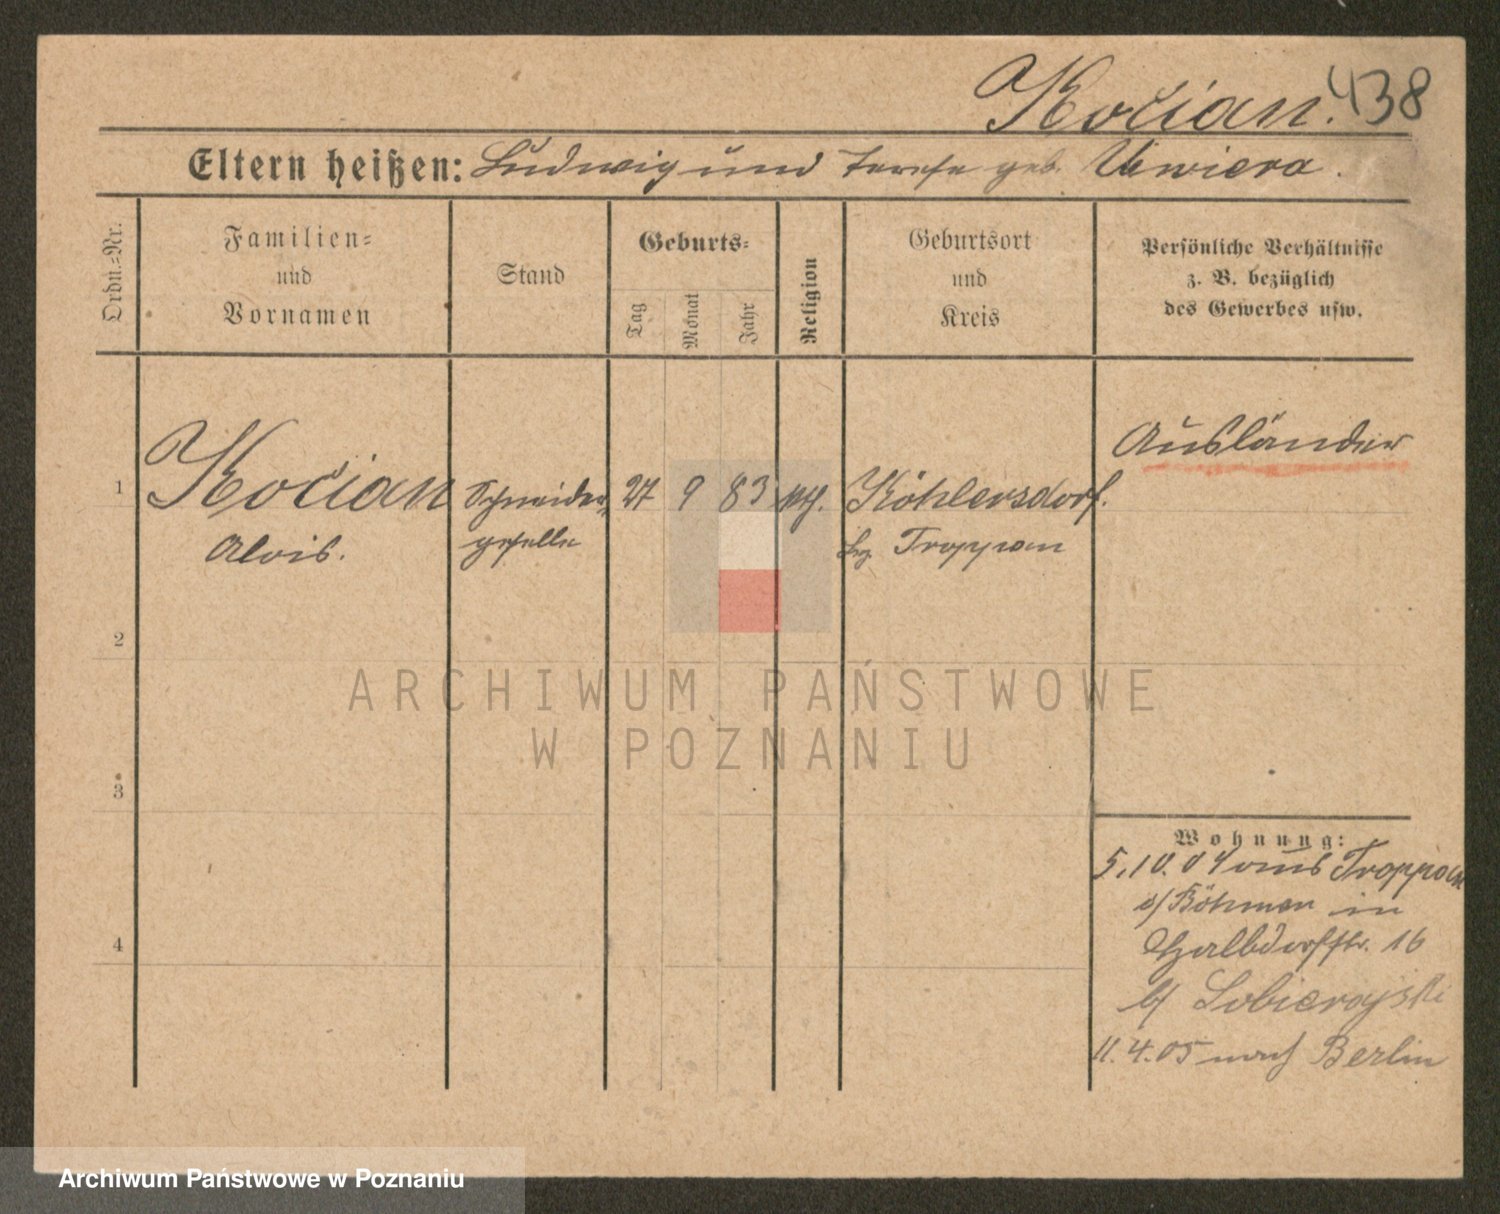 Kočian. 438
Eltern heißen: Ludwig und Terese geb. Uwiera.
Ordn.-Nr.
Familien-
und
Vornamen
Stand
Geburts-
Tag
Monat
Jahr
Religion
Geburtsort
und
Kreis
Persönliche Verhältnisse
z. B. bezüglich
des Gewerbes usw.
Ausländer
1 Kočian Schneider- 27 9 83 kth. Köhlersdorf.
Alois. geselle Troppau
2
3
4
ARCHIWUM PAŃSTWOWE
W POZNANIU
Wohnung:
5.10.04 aus Troppau
Böhmen in
Halbdorfstr. 16
b/
11.4.05 nach Berlin
Archiwum Państwowe w Poznaniu